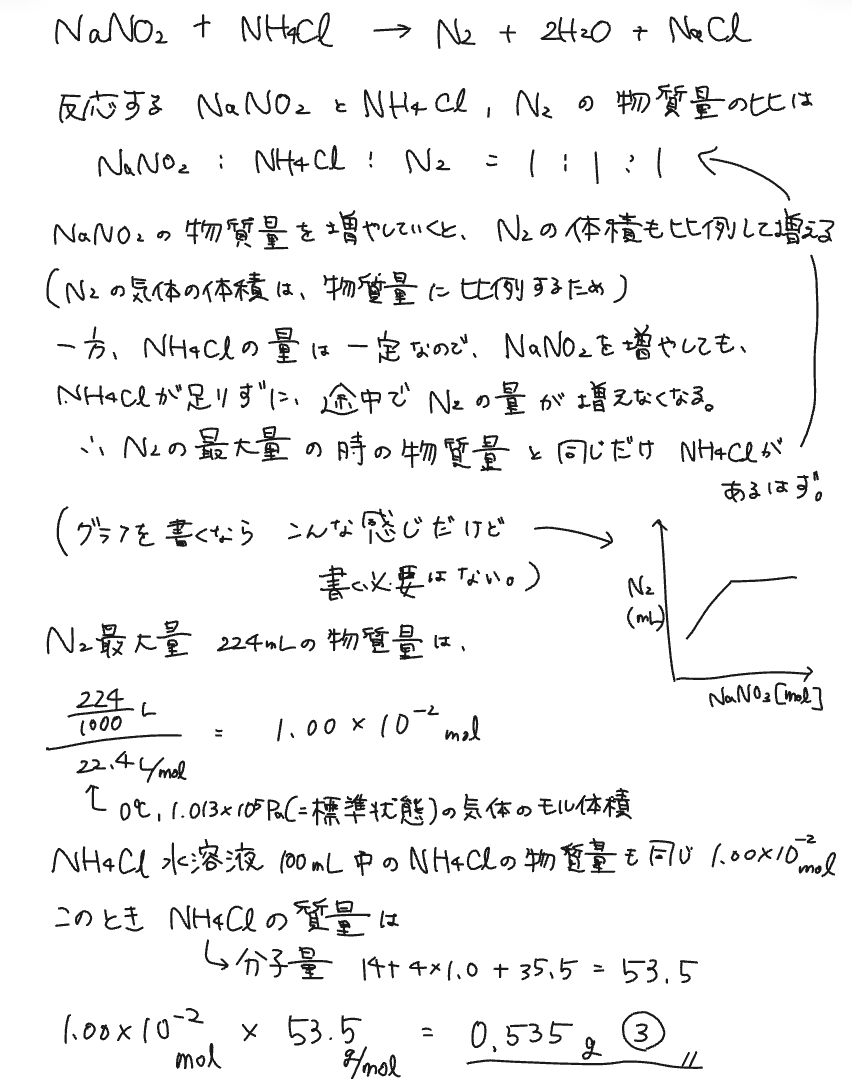 NaNO2 + NH4Cl → N2 + 2H2O + NaCl
反応する NaNO2 と NH4Cl, N2 の 物質量の比は
NaNO2 : NH4Cl : N2 = 1 : 1 : 1
NaNO2 の 物質量を増やしていくと、N2の体積も比例して増える
(N2の気体の体積は、物質量に比例するため)
一方、NH4Clの量は一定なので、NaNO2を増やしても、
NH4Clが足りずに、途中でN2の量が増えなくなる。
∴ N2の最大量の時の物質量と同じだけ NH4Clが
あるはず。
(グラフを書くなら こんな感じだけど →
書く必要はない。)
N2
(mL)
NaNO3[mol]
N2最大量 224mLの物質量は、
224/1000 L / 22.4L/mol = 1.00 × 10⁻² mol
↑ 0℃, 1.013×10⁵Pa(=標準状態)の気体のモル体積
NH4Cl 水溶液 100mL中のNH4Clの物質量も同じ 1.00×10⁻² mol
このとき NH4Clの質量は
↳分子量 14+4×1.0+35.5 = 53.5
1.00×10⁻² mol × 53.5 g/mol = 0.535 g ③